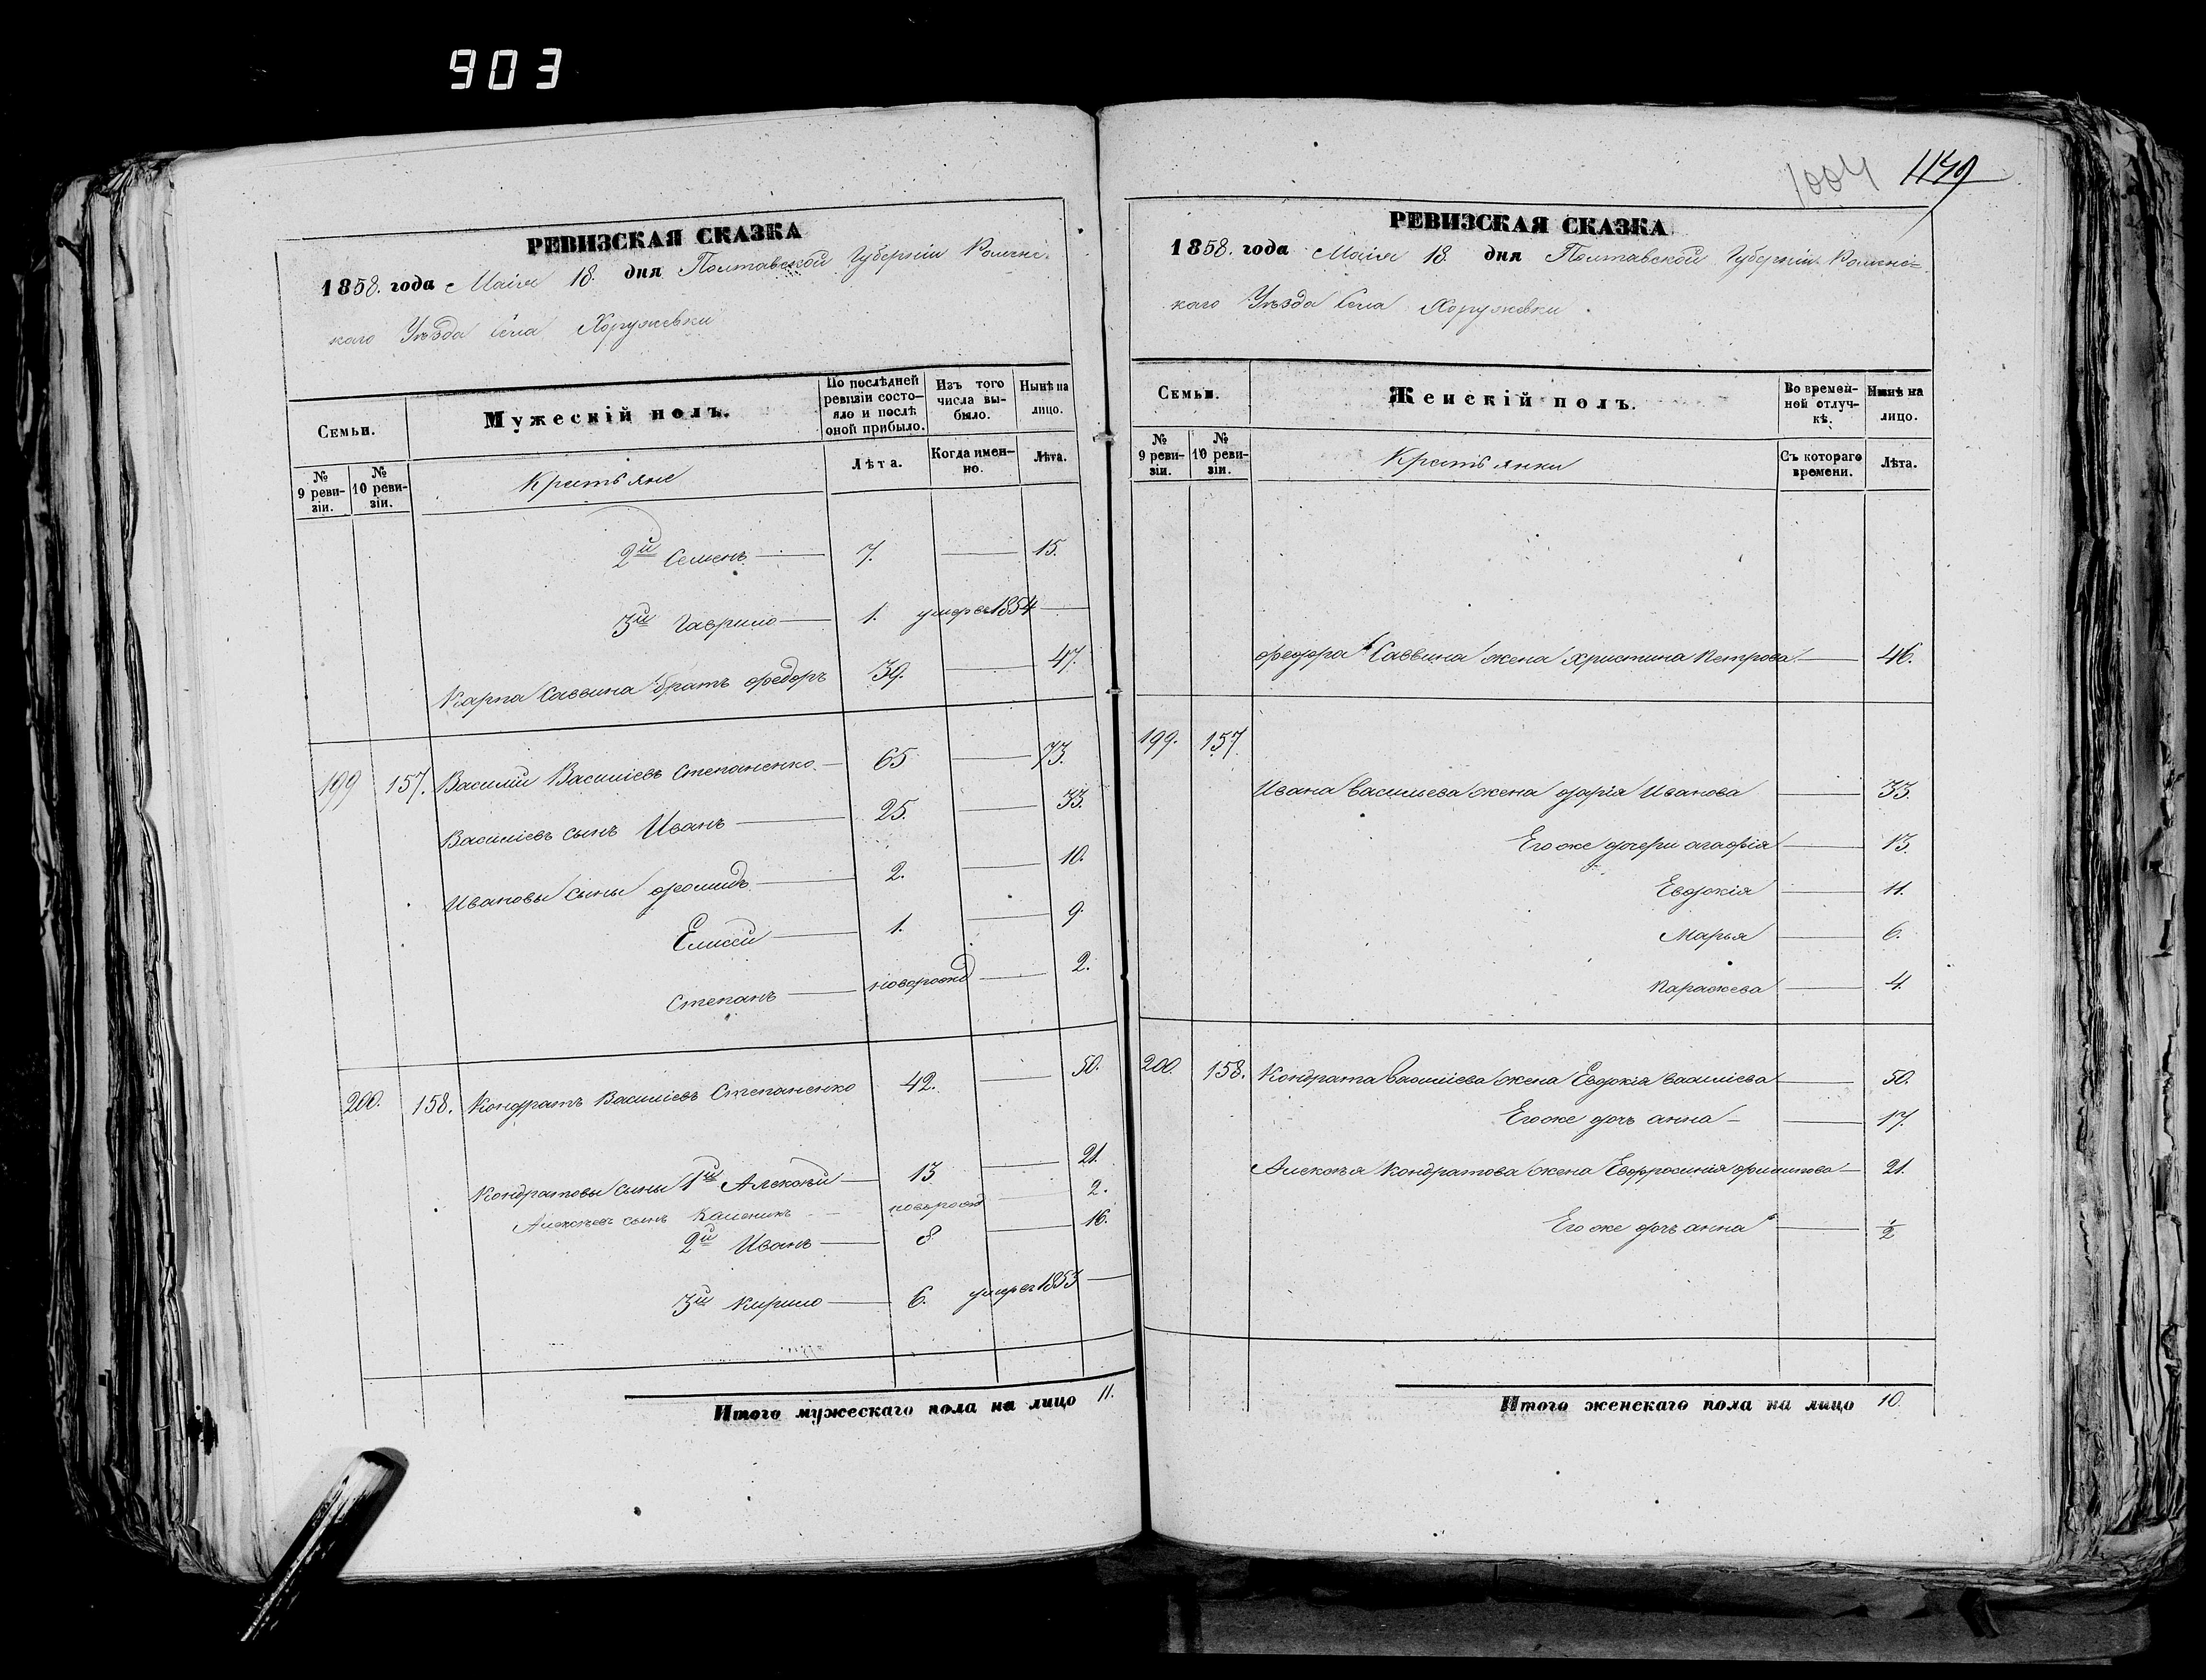 903
РЕВИЗСКАЯ СКАЗКА
1858. года Маія 18. дня Полтавской Губерніи Роменс-
каго Уѣзда Села Хоружевки
Семьи.
Мужескій полъ.
По послѣдней ревизіи состо-яло и послѣ оной прибыло.
Изъ того числа вы-было.
Нынѣ на лицо.
№ 9 реви-зіи.
№ 10 реви-зіи.
Крестьяне
Лѣта.
Когда имен-но.
Лѣта.
2й Семенъ 7. 15.
3й Гаврило 1. умеръ 1854
Карпа Саввина братъ Федоръ 39. 47.
199 157. Василій Василіевъ Степаненко 65 73.
Василіевъ сынъ Иванъ 25. 33.
Ивановы сыны 2. 10.
Елисей 1. 9.
Степанъ новорожд 2.
200. 158. Кондратъ Василіевъ Степаненко 42. 50.
Кондратовы сыны 1й Алексѣй 13 21.
Алексѣевъ сынъ Каленикъ новорожд 2.
2й Иванъ 8 16.
3й Кирило 6. умеръ 1853
Итого мужескаго пола на лицо 11.
1004 1149
РЕВИЗСКАЯ СКАЗКА
1858. года Маія 18. дня Полтавской Губерніи Роменс=
каго Уѣзда Села Хоружевки
Семьи.
Женскій полъ.
Во времен-ной отлуч-кѣ.
Нынѣ на лицо.
№ 9 реви-зіи.
№ 10 реви-зіи.
Крестьянки
Съ котораго времени.
Лѣта.
Федора Саввина жена Христина Петрова 46.
199. 157
Ивана Васильева жена Дарія Иванова 33.
Его же дочери Агафія 13.
Евдокія 11.
Марья 6.
Параскева 4.
200. 158. Кондрата Василіева жена Евдокія Василіева 50.
Его же дочь Анна 17.
Алексѣя Кондратова жена Евфросинія Филипова 21.
Его же дочь Анна 1/2
Итого женскаго пола на лицо 10.